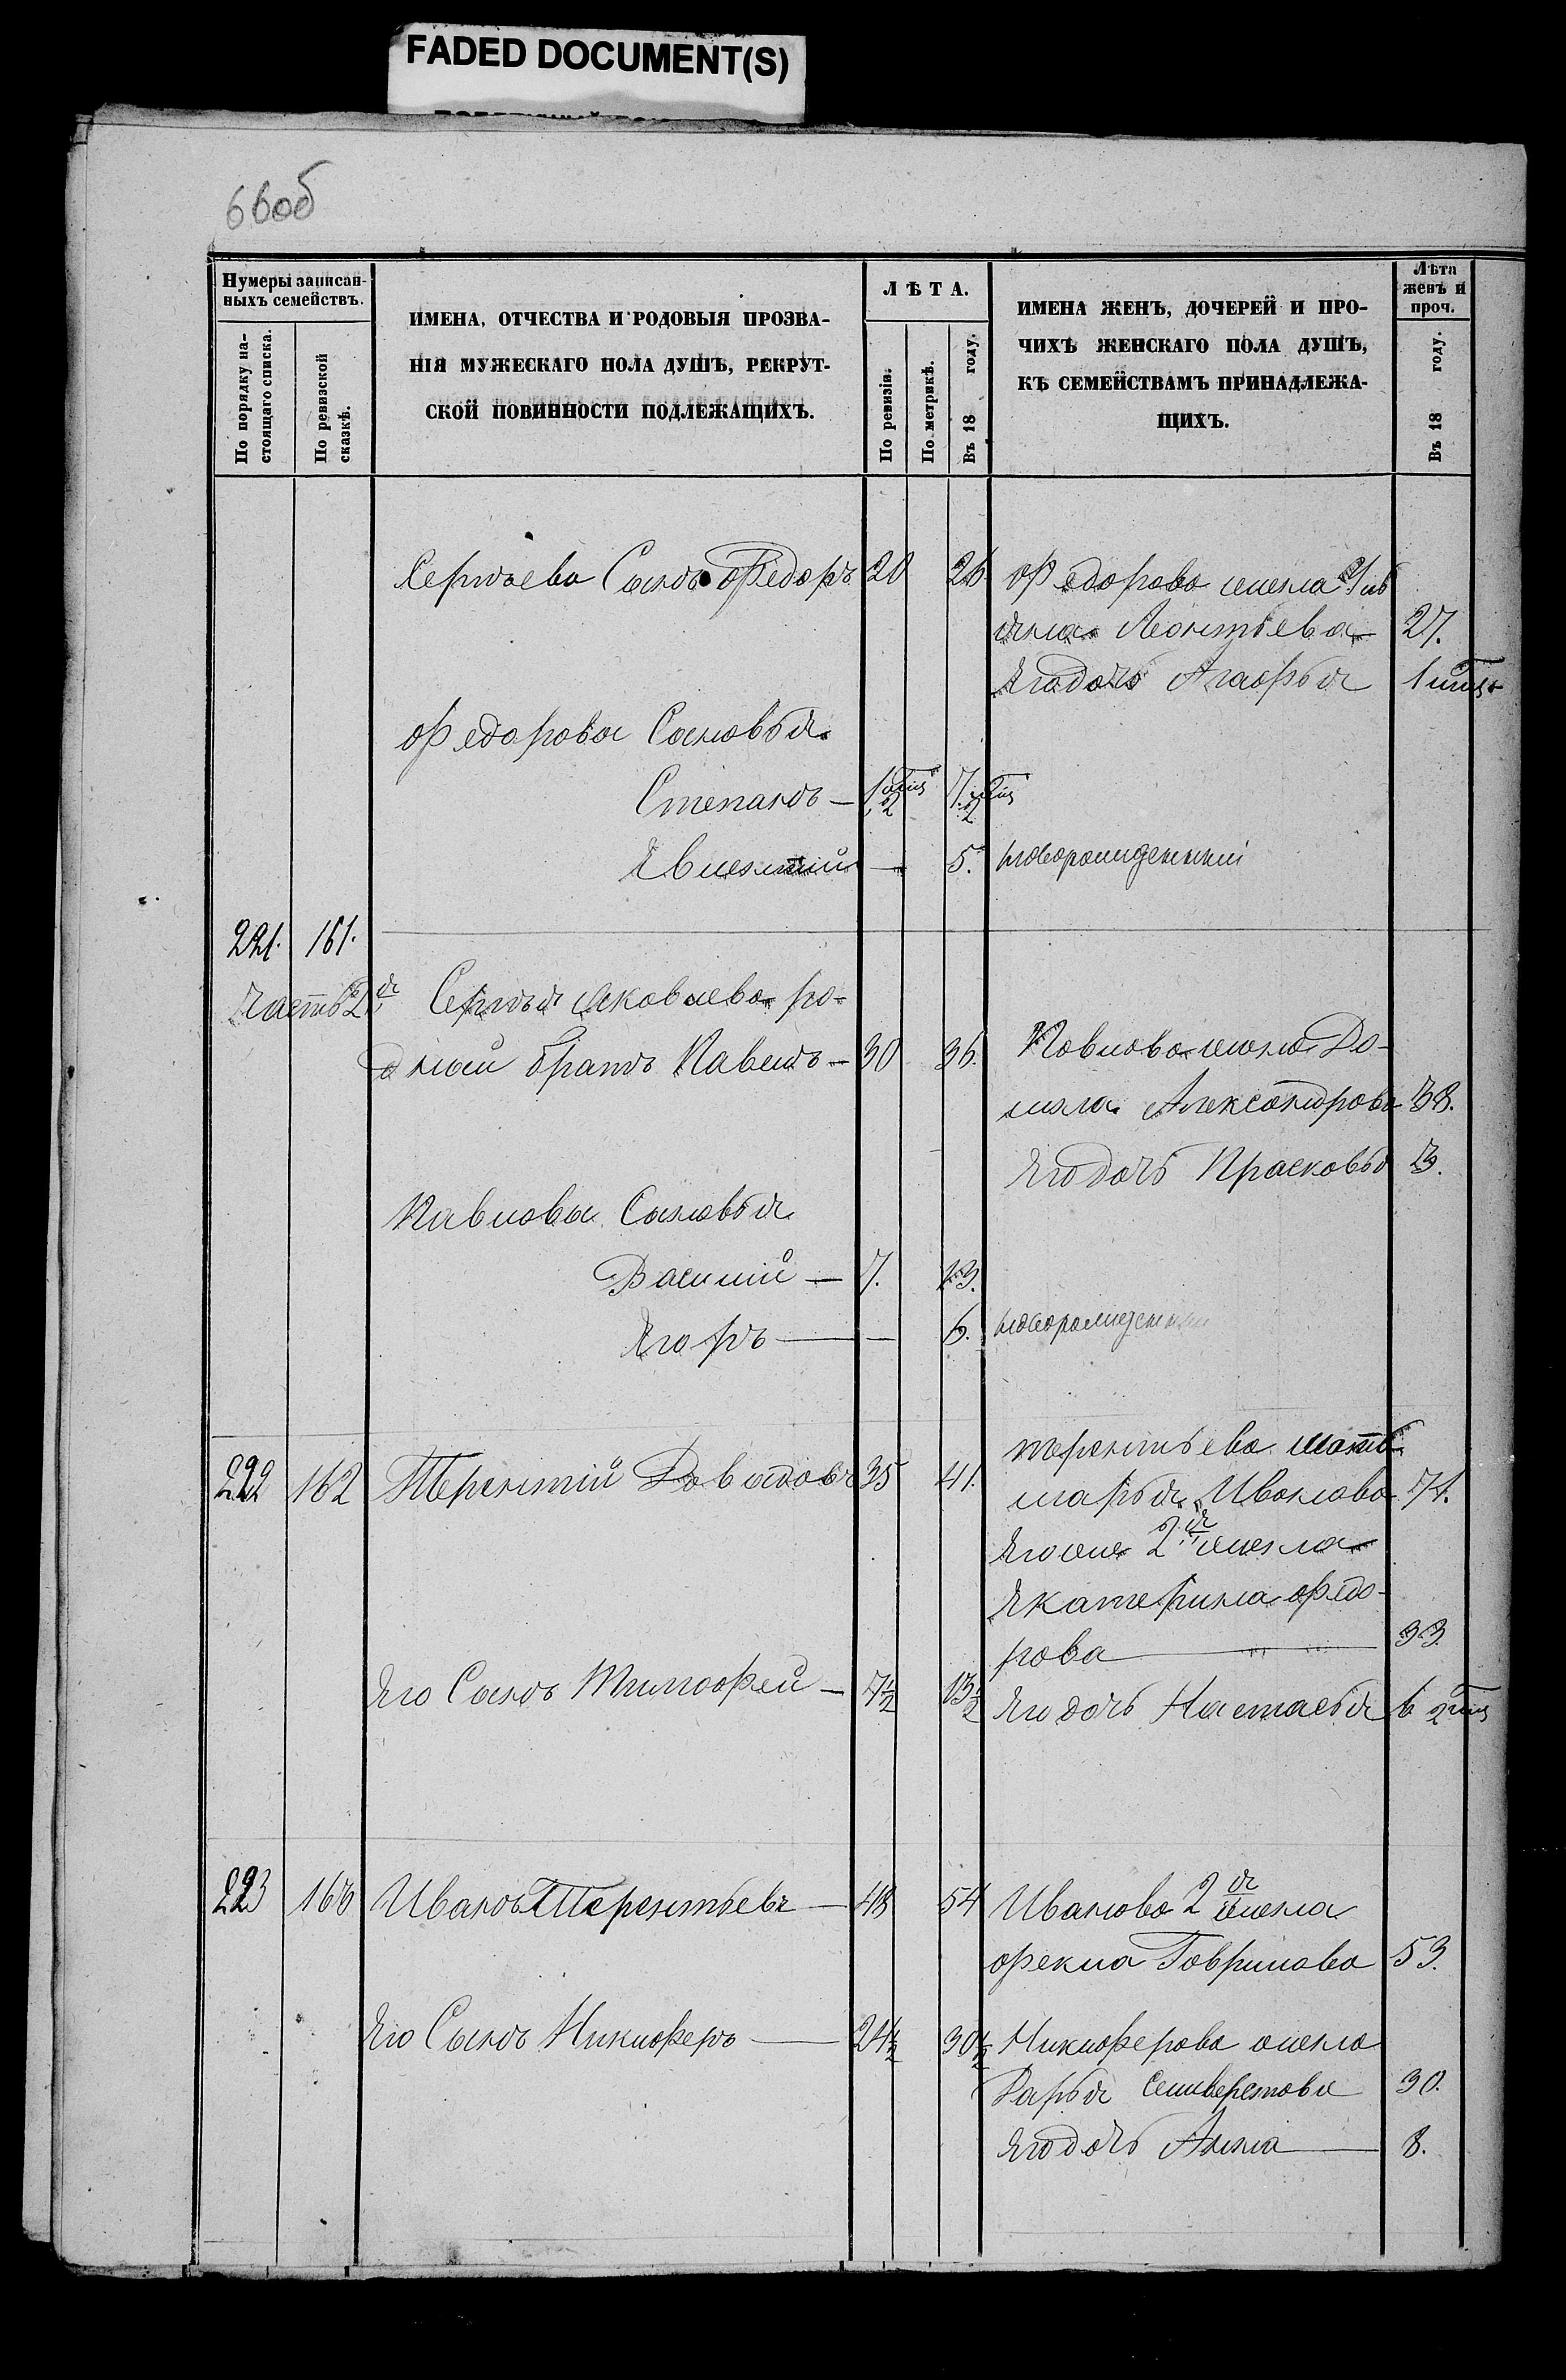 FADED DOCUMENT(S)
66 об
Нумеры записан-
ныхъ семействъ.
По порядку на-
стоящаго списка.
По ревизской
сказкѣ.
ИМЕНА, ОТЧЕСТВА И РОДОВЫЯ ПРОЗВА-
НІЯ МУЖЕСКАГО ПОЛА ДУШЪ, РЕКРУТ-
СКОЙ ПОВИННОСТИ ПОДЛЕЖАЩИХЪ.
ЛѢТА.
По ревизіи.
По метрикѣ.
Въ 18 году.
ИМЕНА ЖЕНЪ, ДОЧЕРЕЙ И ПРО-
ЧИХЪ ЖЕНСКАГО ПОЛА ДУШЪ,
КЪ СЕМЕЙСТВАМЪ ПРИНАДЛЕЖА-
ЩИХЪ.
Лѣта
женъ и
проч.
Въ 18 году.
Сергѣева Сынъ Федоръ 20 26 Федорова жена
Леонтьева 27.
Его дочь Агафья 1
Федоровы Сыновья
Степанъ — 1 1/2 7 1/2
Евлентій — 5. новорожденный
221. 161.
Часть 2я Сергѣя Яковлева ро-
дный братъ Павелъ — 30 36. Павлова жена До-
мна Александрова 38.
Его дочь Прасковья 13.
Павловы Сыновья
Василій — 7. 13.
Егоръ — — 6. новорожденный
Терентьева мать
222 162 Терентій Давыдовъ 35 41. Марья Иванова 71.
Его же 2я жена
Екатерина Федо-
рова — 33.
Его Сынъ Тимофей — 7 1/2 13 1/2 Его дочь Настасья 6
223 166 Иванъ Терентьевъ — 48 54 Иванова 2я жена
Фекла Гаврилова 53.
Его Сынъ Никифоръ — 24 1/2 30 1/2 Никиферова жена
Дарья Селиверстова 30.
Его дочь Анна — 8.